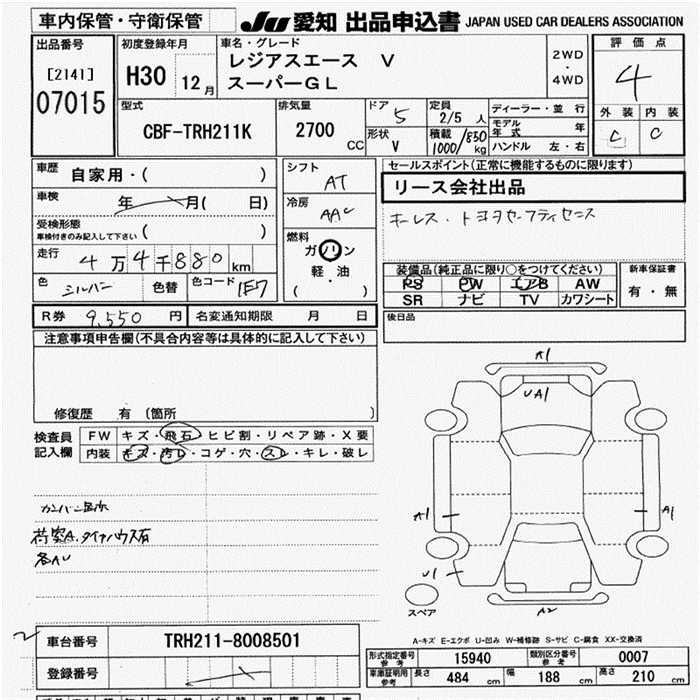 車内保管・守衛保管
JU 愛知 出品申込書 JAPAN USED CAR DEALERS ASSOCIATION
出品番号
[2141]
07015
初度登録年月
H30 12月
車名・グレード
レジアスエース V
スーパーGL
2WD
・
4WD
評価点
4
外装 内装
C C
型式
CBF-TRH211K
排気量
2700 CC
ドア 5
形状 V
定員 2/5 人
積載 1000/850 kg
ディーラー・並行
モデル年式 年
ハンドル 左・右
車歴 自家用・( )
車検 年 月( 日)
受検形態
車検付きのみ記入して下さい ( )
走行 4万4千880km
色 シルバー 色替 色コード 1E7
シフト AT
冷房 AAC
燃料
ガソリン
軽・油
( ・ )
セールスポイント(正常に機能するものに限ります)
リース会社出品
キーレス・トヨタセーフティセンス
装備品(純正品に限り○をつけてください)
PS PW エアB AW
SR ナビ TV カワシート
新車保証書
有・無
R券 9,550円 名変通知期限 月 日
後日品
注意事項申告欄(不具合内容等は具体的に記入して下さい)
修復歴 有 (箇所 )
検査員記入欄
FW キズ・飛石・ヒビ割・リペア跡・X要
内装 キズ・汚レ・コゲ・穴・スレ・キレ・破レ
荷室A、タイヤハウス右
各AU
A1
UA1
A1
A1
U1
A2
スペア
A-キズ E-エクボ U-凹み W-補修跡 S-サビ C-腐食 XX-交換済
車台番号 TRH211-8008501
登録番号
形式指定番号 参考 15940 類別区分番号 参考 0007
車庫証明用 参考 長さ 484 cm 幅 188 cm 高さ 210 cm